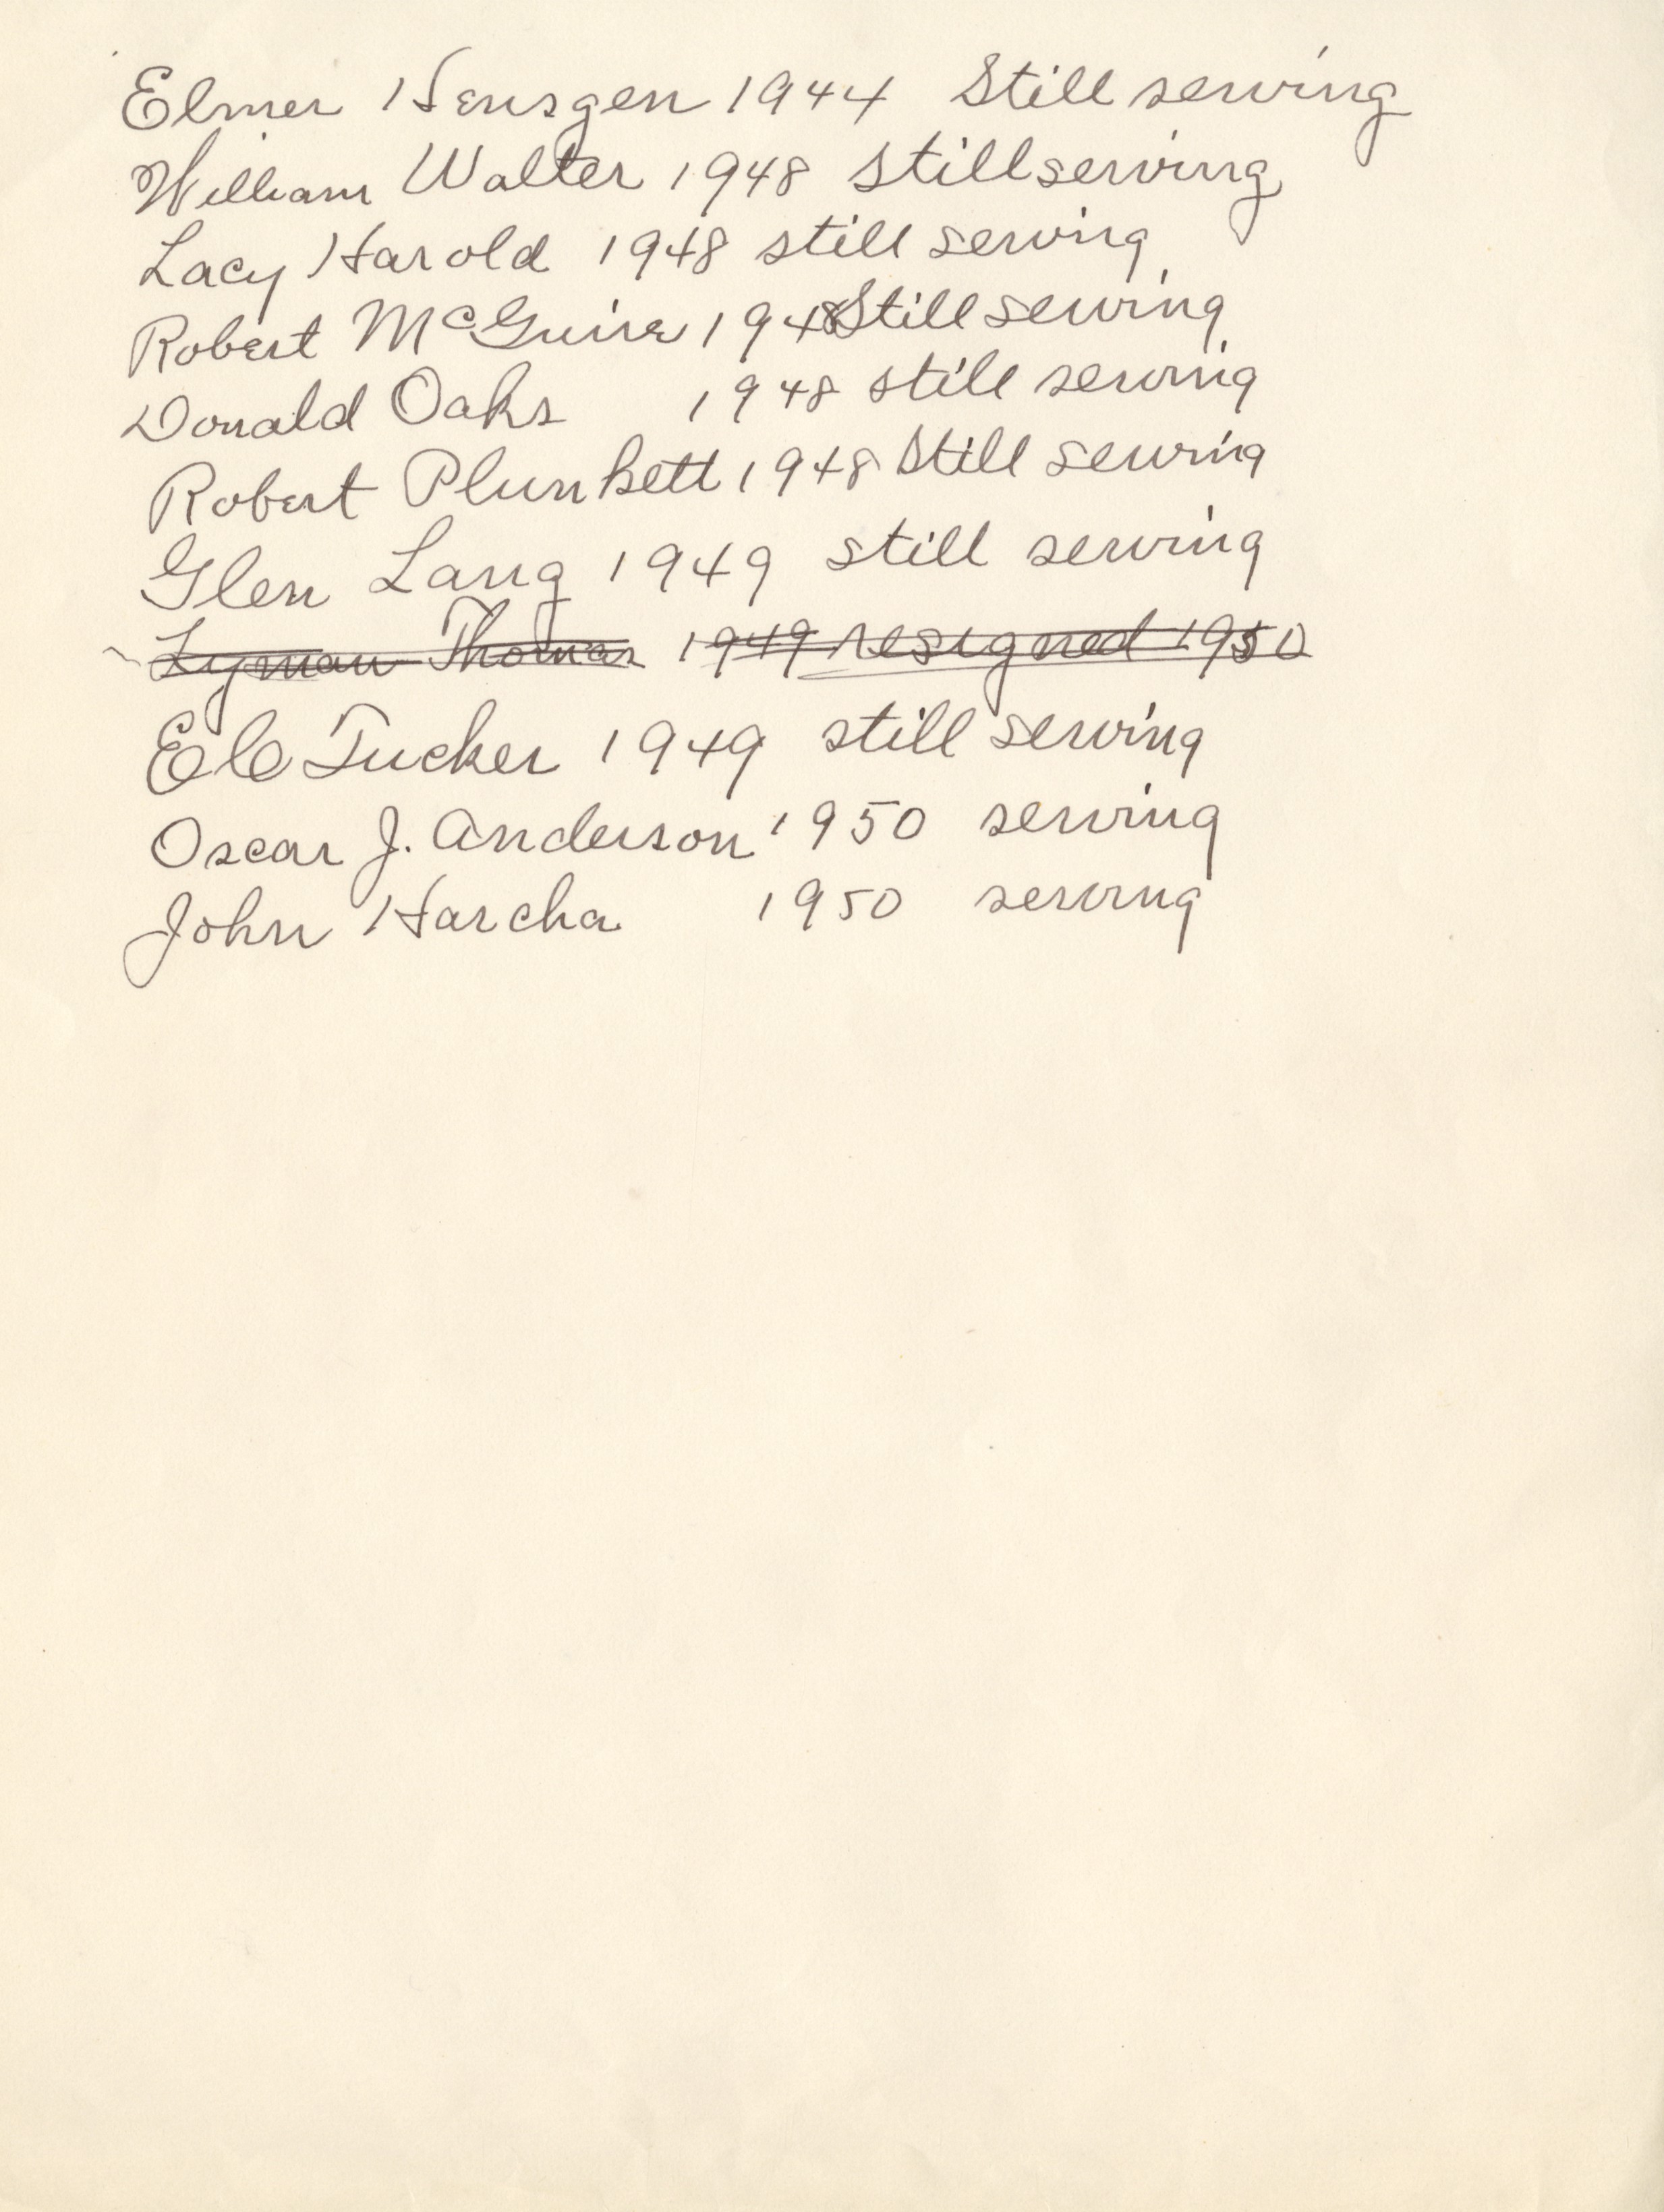 Elmer Hensgen 1944 Still serving
William Walter 1948 Still serving
Lacy Harold 1948 still serving
Robert McGuire 1948 Still serving
Donald Oaks 1948 still serving
Robert Plunkett 1948 Still serving
Glen Lang 1949 still serving
Lyman Thomas 1949 resigned 1950
Tucker 1949 still serving
Oscar J. Anderson 1950 serving
John Harcha 1950 serving